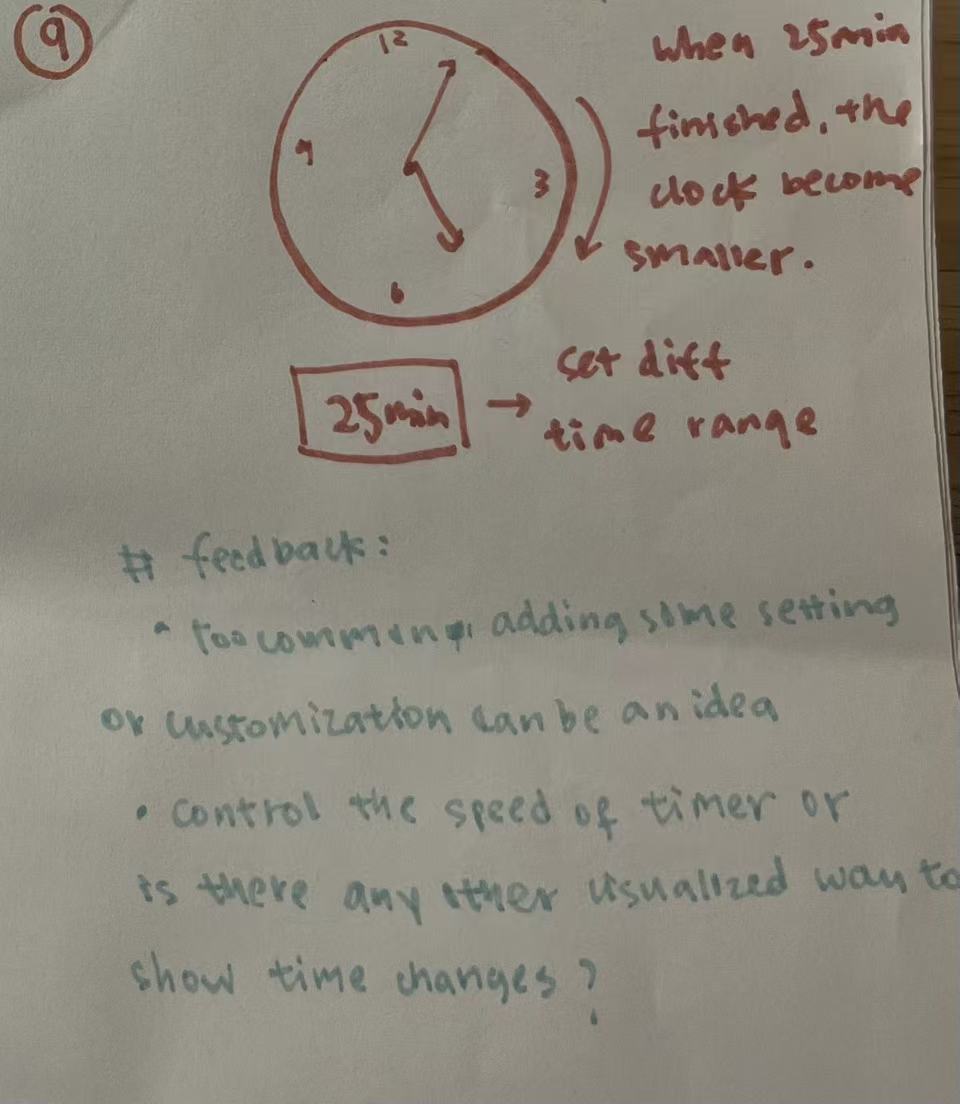 9
12
9
3
6
when 25min
finished, the
clock become
smaller.
25min
set diff
time range
# feedback:
too common, adding some setting
or customization can be an idea
• control the speed of timer or
is there any other visualized way to
show time changes?